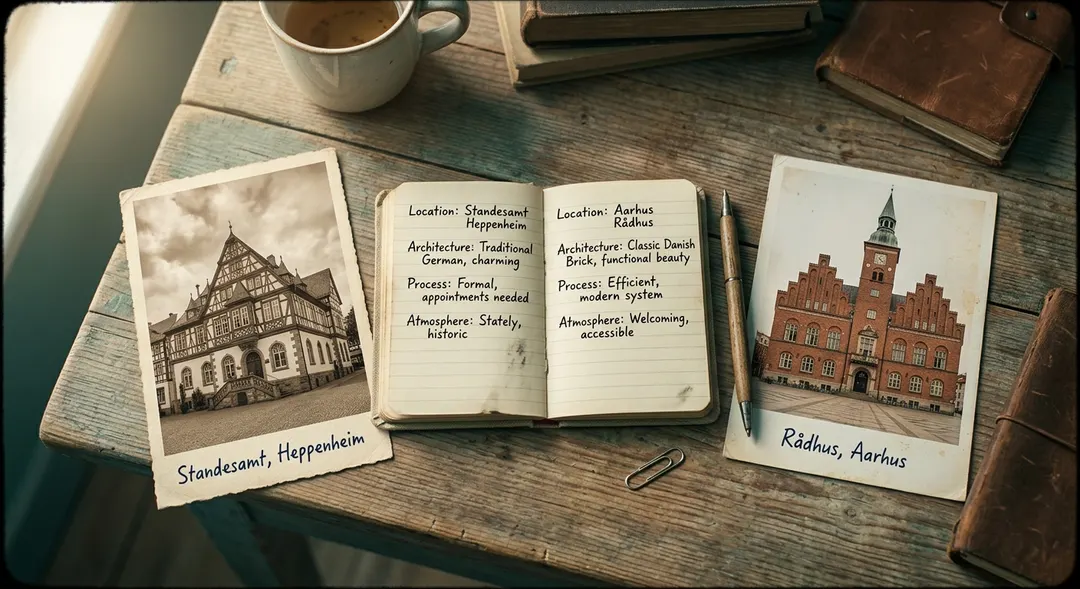 Standesamt, Heppenheim
Location: Standesamt
Heppenheim
Architecture: Traditional
German, charming
Process: Formal,
appointments needed
Atmosphere: Stately,
historic
Location: Aarhus
Rådhus
Architecture: Classic Danish
Brick, functional beauty
Process: Efficient,
modern system
Atmosphere: Welcoming,
accessible
Rådhus, Aarhus